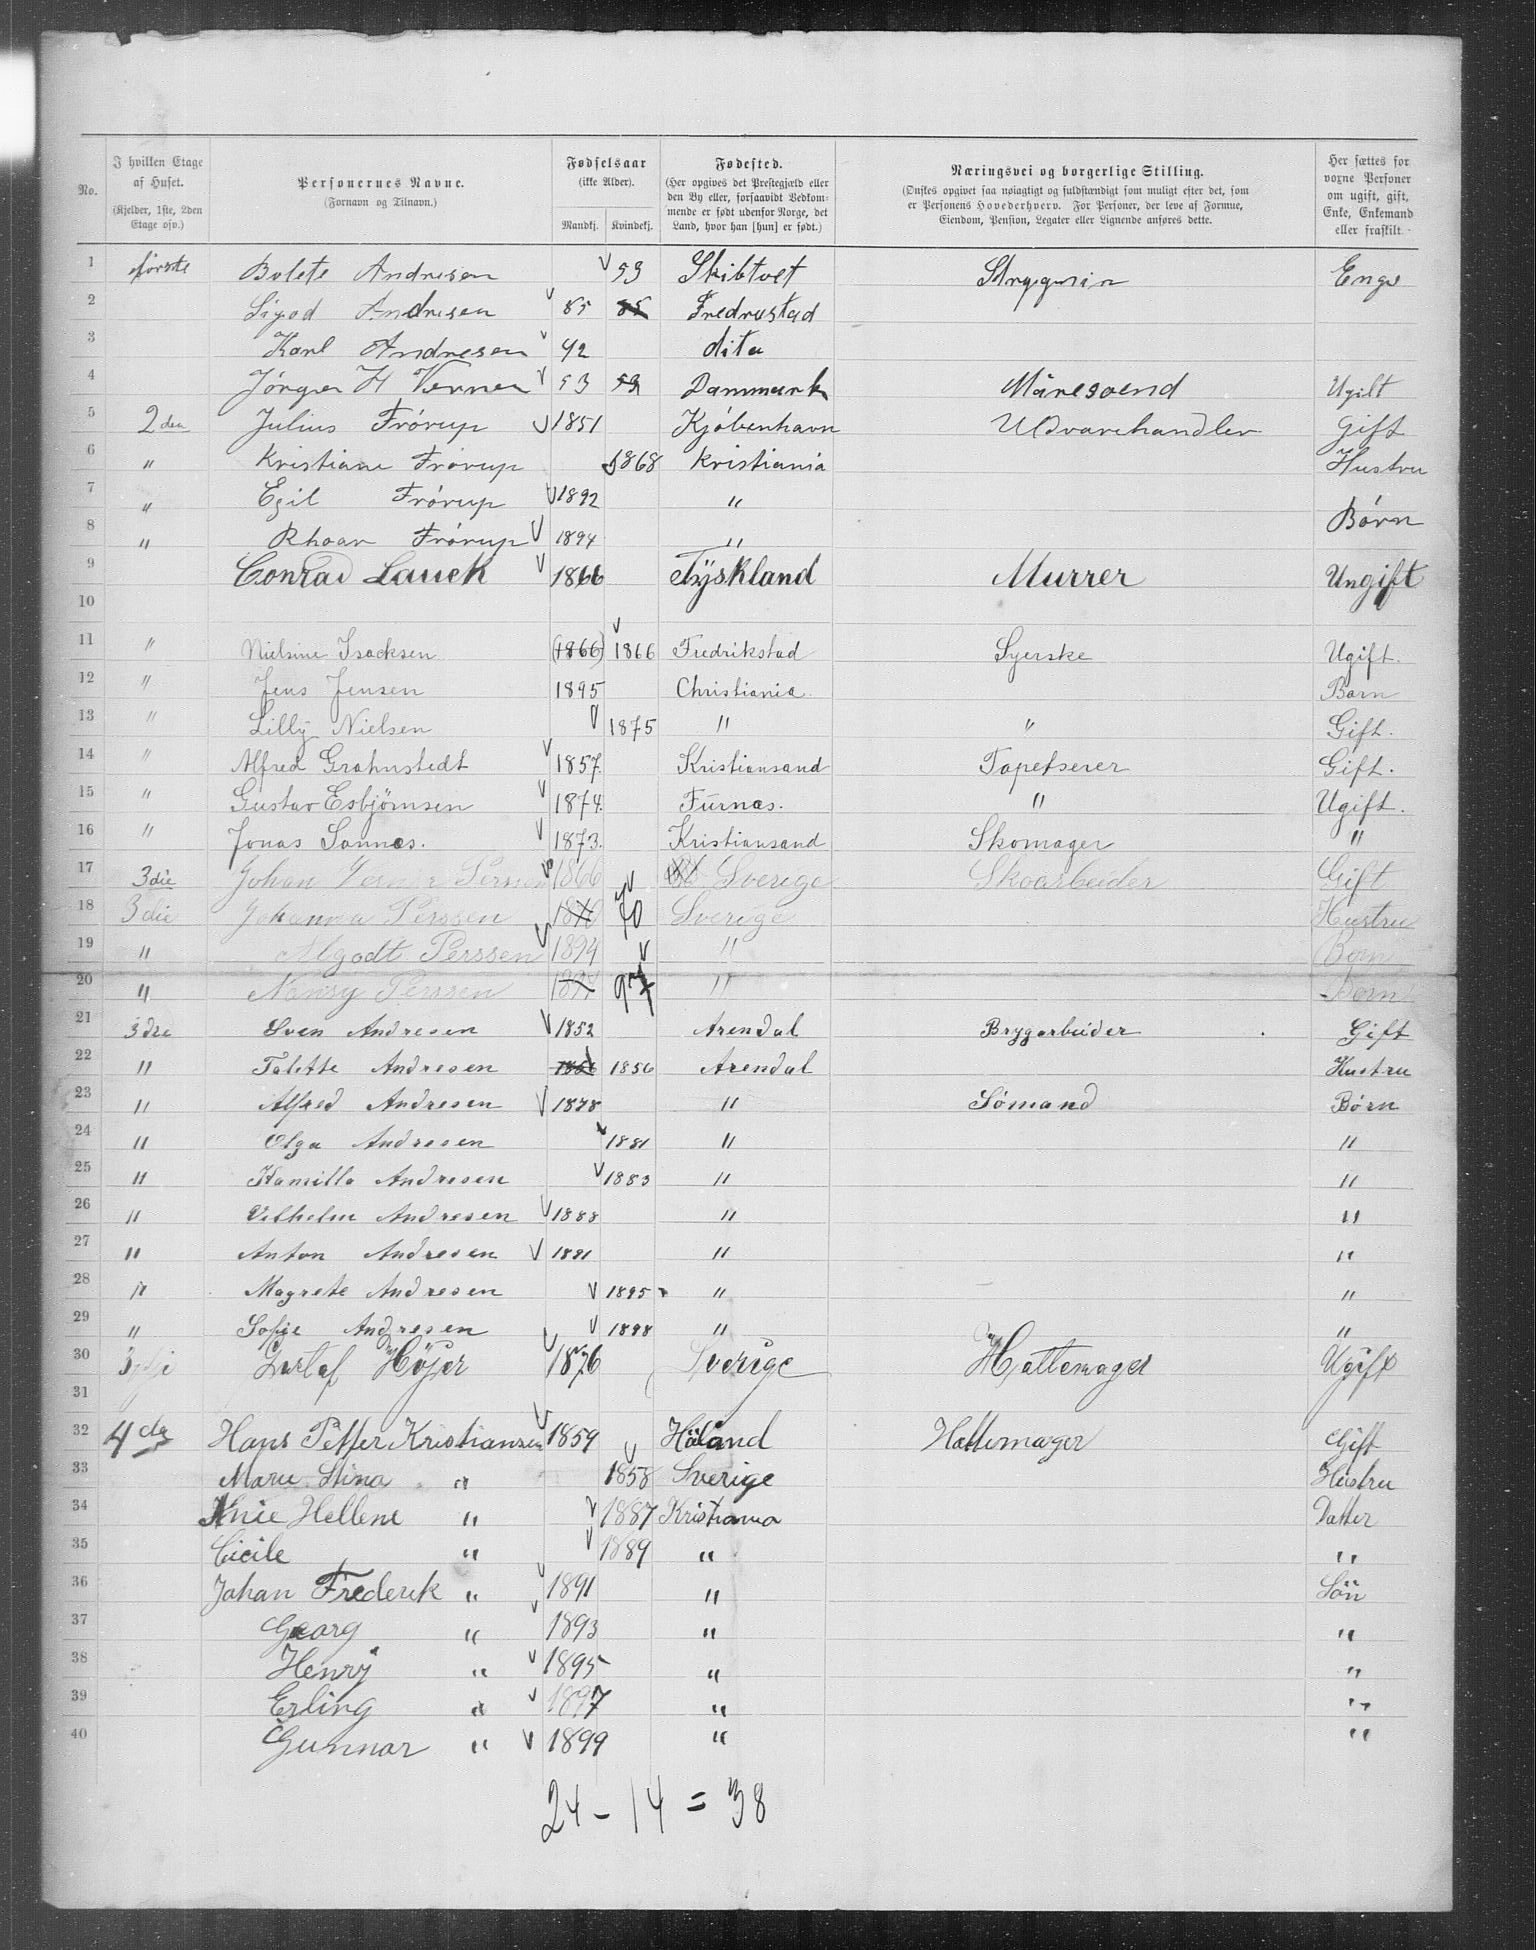 No. | I hvilken Etage af Huset. (Kjelder, 1ste, 2den Etage osv.) | Personernes Navne. (Fornavn og Tilnavn.) | Fødselsaar (ikke Alder). Mandkj. Kvindekj. | Fødested. (Her opgives det Prestegjæld eller den By eller, forsaavidt Vedkommende er født udenfor Norge, det Land, hvor han [hun] er født.) | Næringsvei og borgerlige Stilling. (Ønskes opgivet saa nøiagtigt og fuldstændigt som muligt efter det, som er Personens Hovederhverv. For Personer, der leve af Formue, Eiendom, Pension, Legater eller Lignende anføres dette. | Her sættes for voxne Personer om ugift, gift, Enke, Enkemand eller fraskilt.
1 første Bolete Andresen 53 Skibtvet Strygerin Enge
2 Sigod Andresen 85 85 Fredrostad
3 Karl Andresen 42 dito
4 Jørgen H Verner 53 53 Danmark Ugilt
5 2den Julius Frörup 1851 Kjøbenhavn Udvarehandler Gift
6 " Kristiane Frörup 1868 Kristiania Hustru
7 " Egil Frörup 1892 "
8 " Rhoar Frörup 1894 " Börn
9 Conrad Lauck 1866 Tyskland Murrer Ungift
10
11 " Nielsine Isacksen (1866) 1866 Fredrikstad Syerske Ugift.
12 " Jens Jensen 1895 Christiania. Barn
13 " Lilly Nielsen 1875 " " Gift.
14 " Alfred Grahnstedt 1857. Kristiansand Tapetserer Gift.
15 " Gustav Esbjörnsen 1874. Furnæs. " Ugift.
16 " Jonas Sannes. 1873. Kristiansand Skomager "
17 3die Johan Verner Perssen 1866 Sverige Skoarbeider Gift
18 3die Johanna Perssen 1870 70 Sverige Hustru
19 " Algodt Perssen 1894 " Born
20 " Nansy Perssen 1897 97 " Born
21 3dre Sven Andresen 1852 Arendal Brygarbeider Gift
22 " Talette Andresen 1856 1856 Arendal Hustru
23 " Alfred Andresen 1878 " Sömand Börn
24 " Olga Andresen 1881 " "
25 " Kamilla Andresen 1883 " "
26 " Vilhelm Andresen 1888 " "
27 " Anton Andresen 1891 " "
28 " Magrete Andresen 1895 " "
29 " Sofie Andresen 1898 " "
30 Højer 1876 Sverige Hattemager Ugift
31
32 4de Hans Petter Kristiansen 1859 Höland Hattemager Gift
33 Marie Stina " 1858 Sverige Hustru
34 Anie Hellene " 1887 Kristiania Datter
35 Cicile " 1889 " "
36 Johan Frederik " 1891 " Sön
37 Georg " 1893 " "
38 Henry " 1895 " "
39 Erling " 1897 " "
40 Gunnar " 1899 " "
24 - 14 = 38